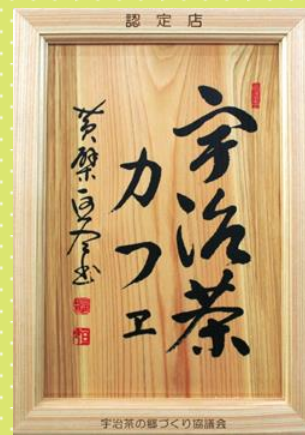 認定店
宇治茶
カフェ
宇治茶の郷づくり協議会